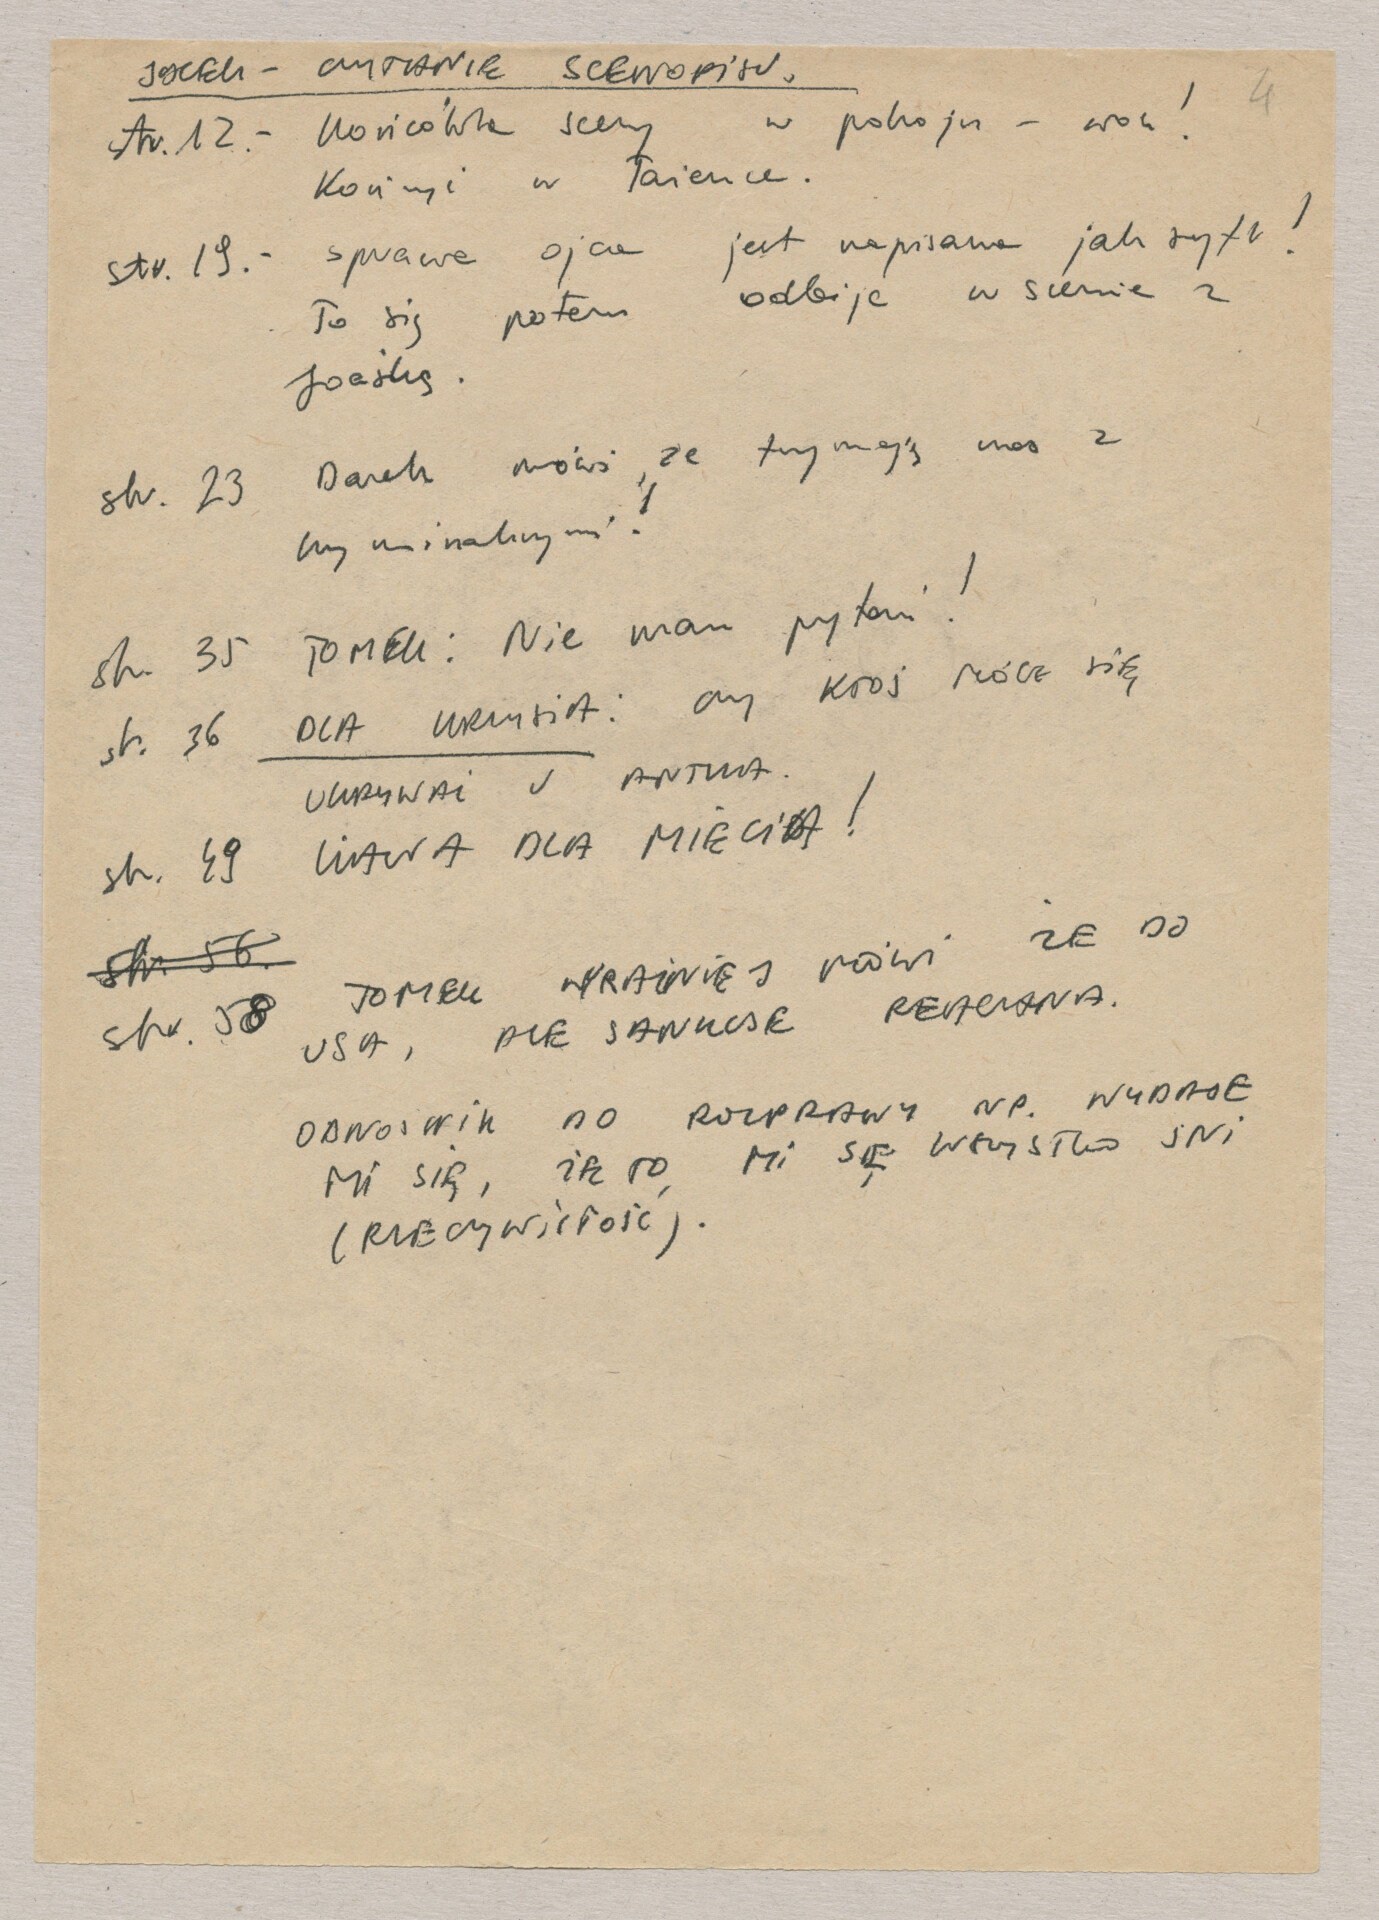 JACEK - CZYTANIE SCENOPISU.
4
str. 12. - Końcówka sceny w pokoju - won!
Kończyć w łazience.
str. 19. - sprawa ojca jest napisana jak
To się potem odbije w scenie z
Joaśką.
str. 23 Darek mówi, że trzymają nas z
kryminalnymi!
str. 35 TOMEK: Nie mam pytań!
str. 36 DLA KRZYSIA: czy KTOŚ MOŻE SIĘ
UKRYWAĆ U ANTKA.
str. 49 KAWA DLA MIECIA!
str. 56.
str. 58 TOMEK WYRAŹNIEJ MÓWI ŻE DO
USA, ALE SANKCJE REAGANA.
ODNOŚNIK DO ROZPRAWY NP. WYDAJE
MI SIĘ, ŻE TO MI SIĘ WSZYSTKO ŚNI
(RZECZYWISTOŚĆ).